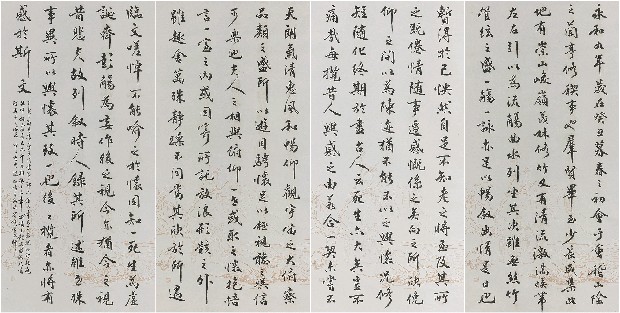 永和九年歲在癸丑暮春之初會于會稽山陰
之蘭亭修稧事也群賢畢至少長咸集此
地有崇山峻嶺茂林修竹又有清流激湍映帶
左右引以為流觴曲水列坐其次雖無絲竹
管絃之盛一觴一詠亦足以暢敘幽情是日也
天朗氣清惠風和暢仰觀宇宙之大俯察
品類之盛所以遊目騁懷足以極視聽之娛信
可樂也夫人之相與俯仰一世或取之懷抱悟
言一室之內或因寄所託放浪形骸之外
雖趣舍萬殊靜躁不同當其欣於所遇
暫得於己快然自足不知老之將至及其所
之既倦情隨事遷感慨係之矣向之所欣俛
仰之間以為陳迹猶不能不以之興懷況修
短隨化終期於盡古人云死生亦大矣豈不
痛哉每攬昔人興感之由若合一契未嘗不
臨文嗟悼不能喻之於懷固知一死生為虛
誕齊彭殤為妄作後之視今亦猶今之視
昔悲夫故列敘時人錄其所述雖世殊
事異所以興懷其致一也後之攬者亦將有
感於斯文